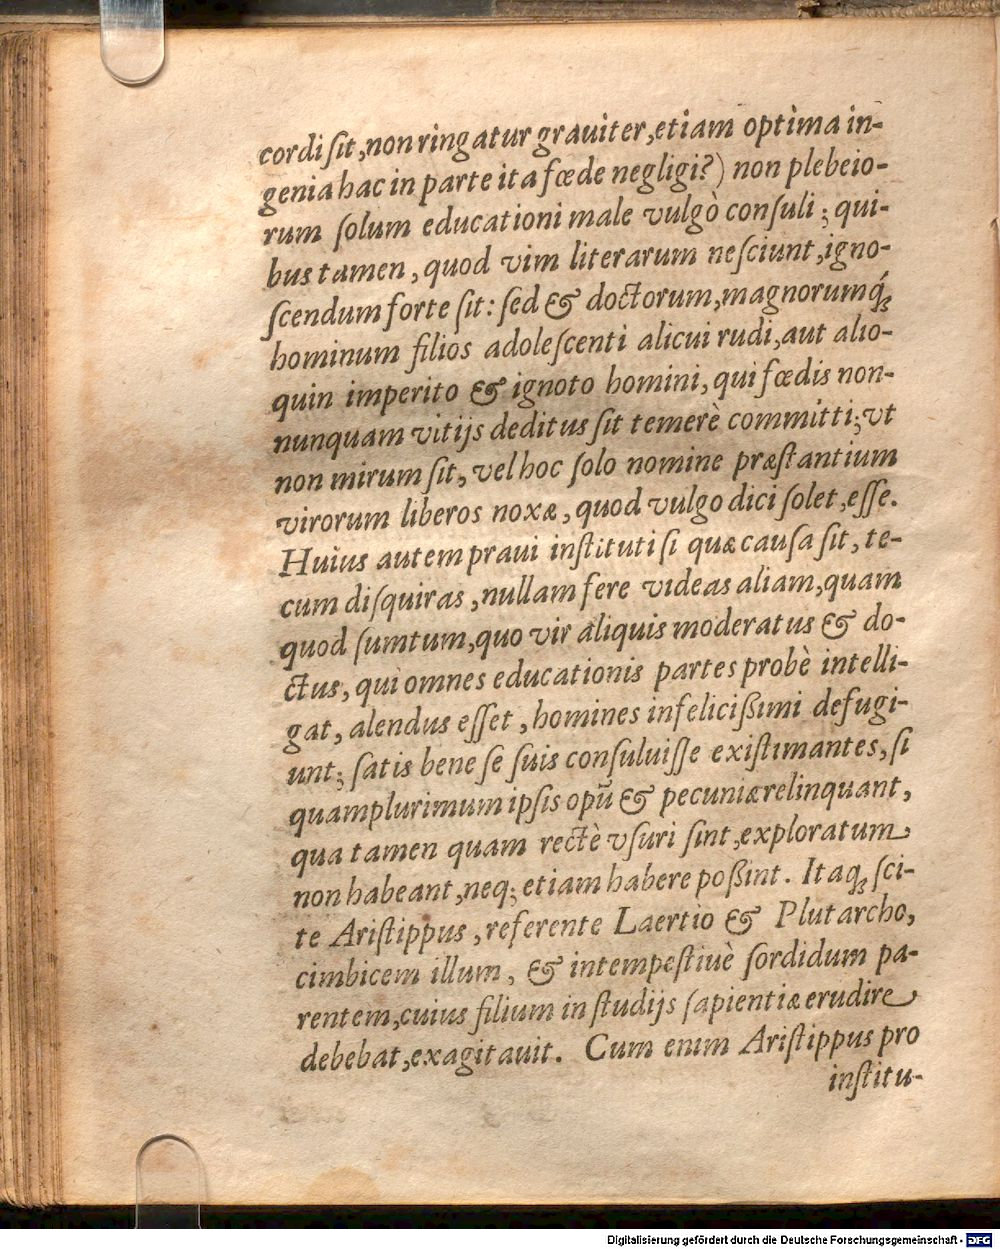 cordi ſit, non ringatur grauiter, etiam optima in-
genia hac in parte ita fœde negligi?) non plebeio-
rum ſolum educationi male vulgò conſuli; qui-
bus tamen, quod vim literarum neſciunt, igno-
ſcendum forte ſit: ſed & doctorum, magnorumq́;
hominum filios adoleſcenti alicui rudi, aut alio-
quin imperito & ignoto homini, qui fœdis non-
nunquam vitijs deditus ſit temerè committi; vt
non mirum ſit, vel hoc ſolo nomine præſtantium
virorum liberos noxæ, quod vulgo dici ſolet, eſſe.
Huius autem praui inſtituti ſi quæ cauſa ſit, te-
cum diſquiras, nullam fere videas aliam, quam
quod ſumtum, quo vir aliquis moderatus & do-
ctus, qui omnes educationis partes probè intelli-
gat, alendus eſſet, homines infelicißimi defugi-
unt; ſatis bene ſe ſuis conſuluiſſe exiſtimantes, ſi
quamplurimum ipſis opū & pecuniæ relinquant,
qua tamen quam rectè vſuri ſint, exploratum
non habeant, neq; etiam habere poßint. Itaq; ſci-
te Ariſtippus, referente Laertio & Plutarcho,
cimbicem illum, & intempeſtiuè ſordidum pa-
rentem, cuius filium in ſtudijs ſapientiæ erudire
debebat, exagitauit. Cum enim Ariſtippus pro
inſtitu-
Digitalisierung gefördert durch die Deutsche Forschungsgemeinschaft - DFG